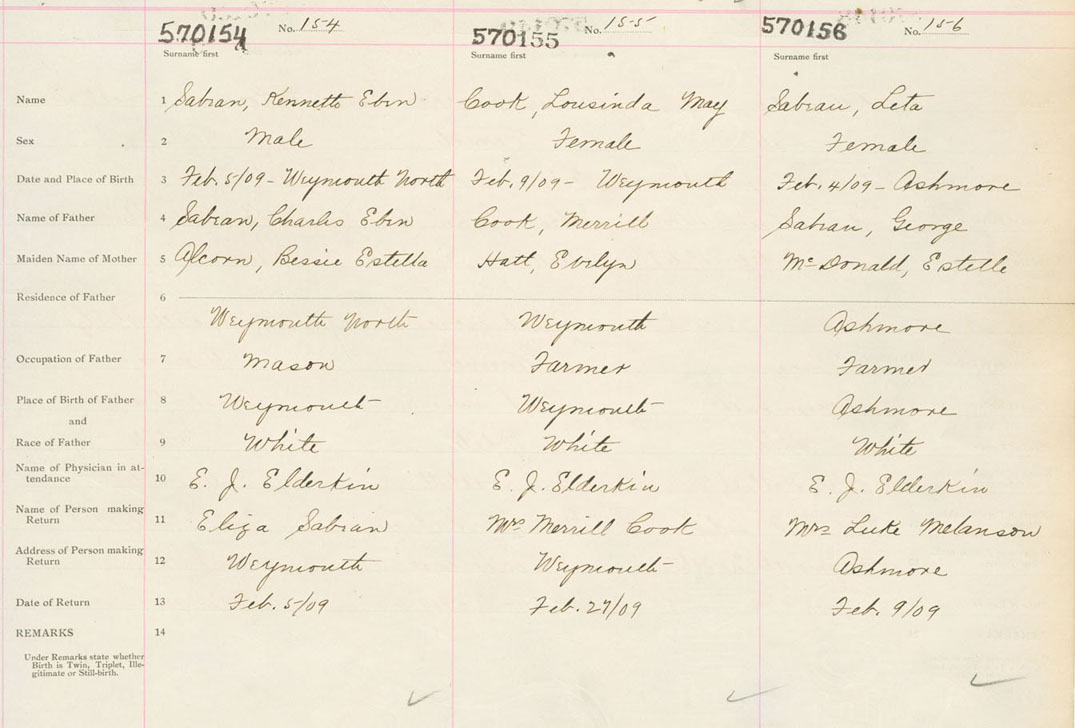 570154 No. 154 570155 No. 155 570156 No. 156
Surname first Surname first Surname first
Name 1 Sabian, Kenneth Eben Cook, Lousinda May Sabian, Leta
Sex 2 Male Female Female
Date and Place of Birth 3 Feb. 5/09 - Weymouth North Feb. 9/09 - Weymouth Feb. 4/09 - Ashmore
Name of Father 4 Sabian, Charles Eben Cook, Merrill Sabian, George
Maiden Name of Mother 5 Alcorn, Bessie Estella Hatt, Evelyn McDonald, Estelle
Residence of Father 6
Weymouth North Weymouth Ashmore
Occupation of Father 7 Mason Farmer Farmer
Place of Birth of Father 8 Weymouth Weymouth Ashmore
and
Race of Father 9 White White White
Name of Physician in at-
tendance 10 E. J. Elderkin E. J. Elderkin E. J. Elderkin
Name of Person making
Return 11 Eliza Sabian Mrs Merrill Cook Mrs Luke Melanson
Address of Person making
Return 12 Weymouth Weymouth Ashmore
Date of Return 13 Feb. 5/09 Feb. 27/09 Feb. 9/09
REMARKS 14
Under Remarks state whether
Birth is Twin, Triplet, Ille-
gitimate or Still-birth.